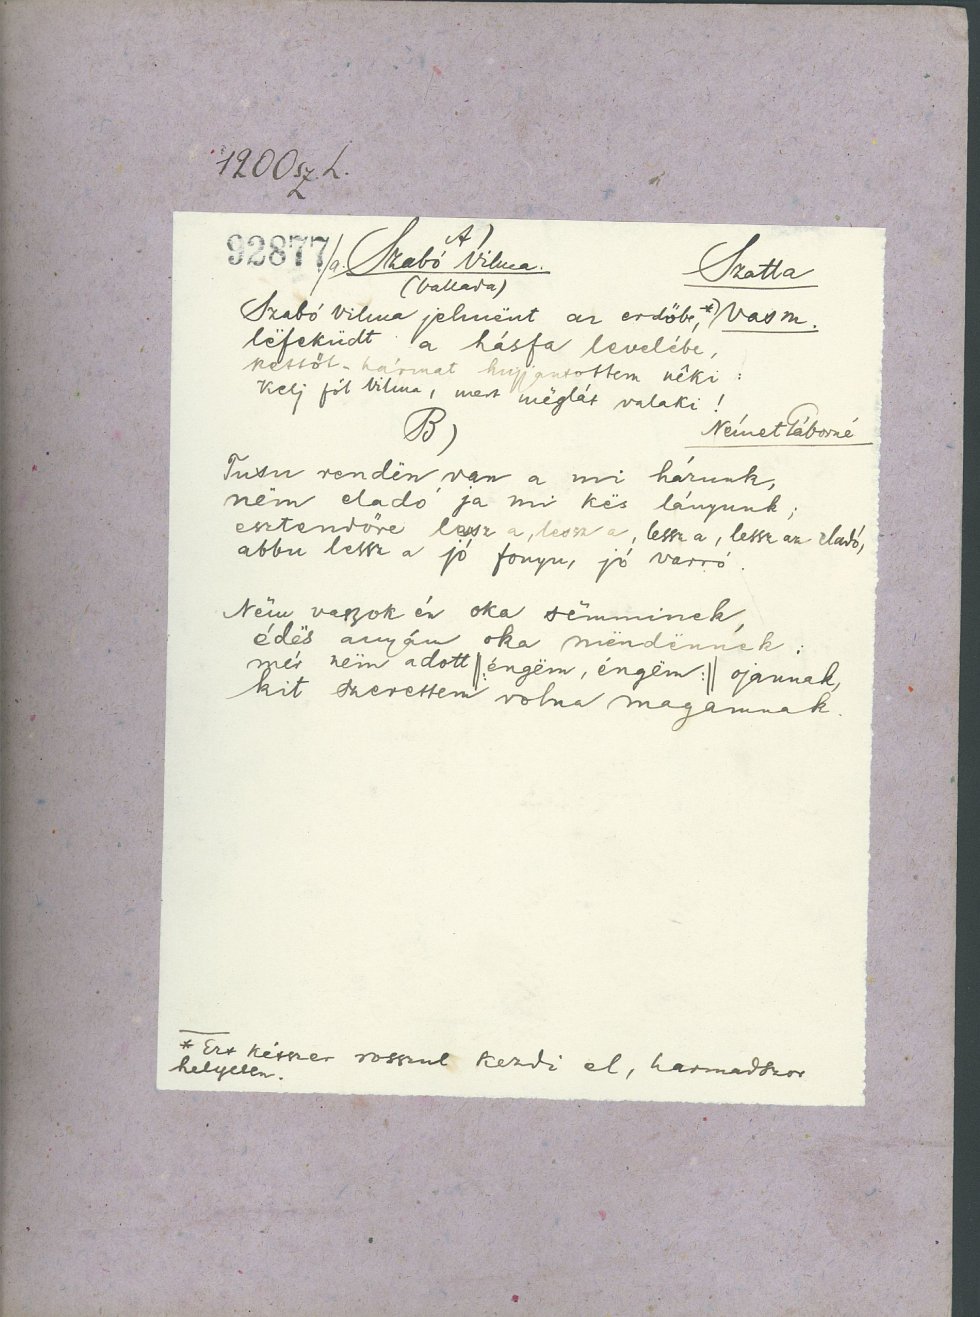 1200 sz. L.
92877/a.
A)
Szabó Vilma.
(ballada)
Szatta
Vas m.
Szabó Vilma jelmënt az erdőbe,*)
lëfeküdt a hásfa levelébe,
kettőt-hármat hujjantottem néki:
Kelj föl Vilma, mert mëglát valaki!
B)
Német Gáborné
Tusu rendën van a mi hárunk,
nëm eladó ja mi kës lányunk;
esztendőre lessz a, lessz a, lessz a, lessz az eladó,
abbu lessz a jó fonyu, jó varró.
Nëm vaszok én oka sëmminek,
édës anyám oka mëndënnek;
mér nëm adott ||: éngëm, éngëm :|| ojannak,
kit szerettem volna magamnak.
* Ezt kétszer rosszul kezdi el, harmadszor
helyesen.